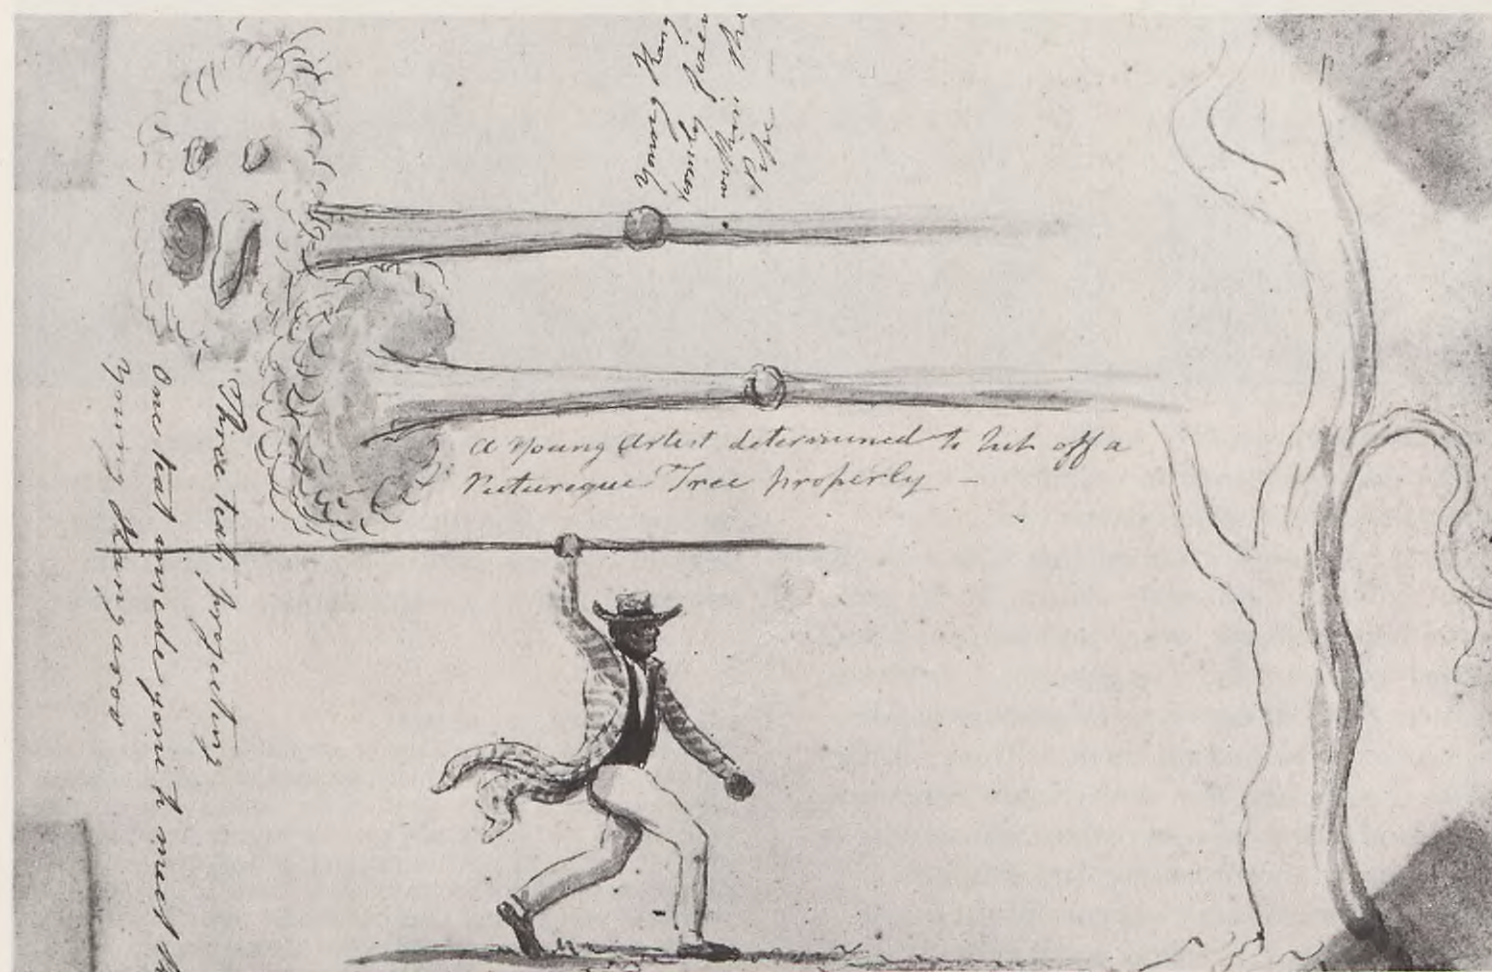 Young Kang
within the
A Young Artist determined to hit off a
Picturesque Tree properly —
Three teats projecting
One teat inside gone to meet th
young Kangaroo